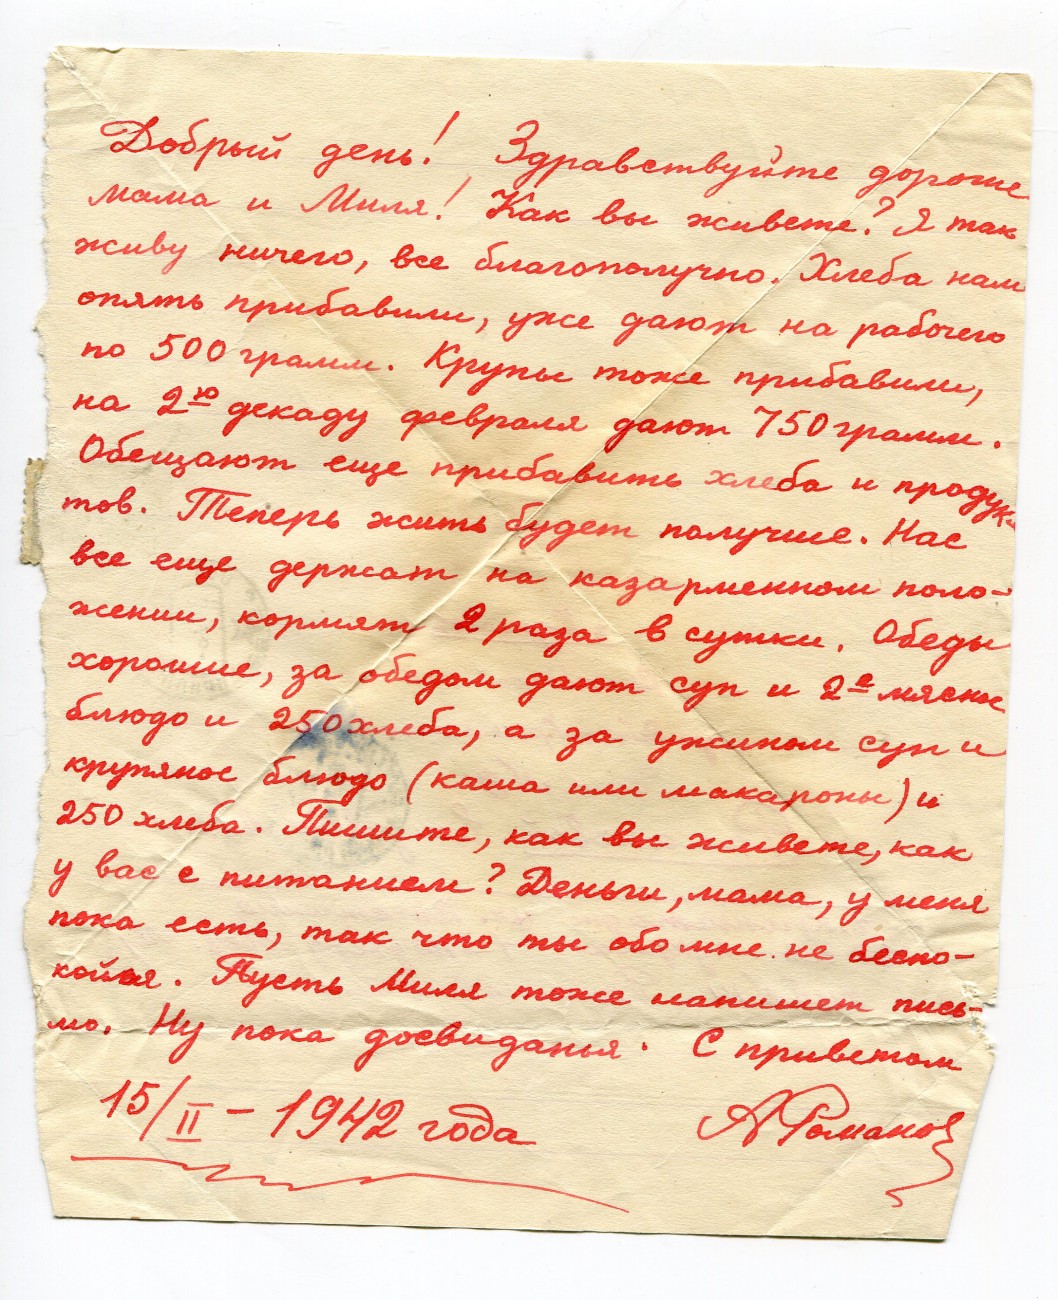 Добрый день! Здравствуйте дорогие
мама и Миля! Как вы живете? Я так
живу ничего, все благополучно. Хлеба нам
опять прибавили, уже дают на рабочего
по 500 грамм. Крупы тоже прибавили,
на 2ю декаду февраля дают 750 грамм.
Обещают еще прибавить хлеба и продук-
тов. Теперь жить будет получше. Нас
все еще держат на казарменном поло-
жении, кормят 2 раза в сутки. Обеды
хорошие, за обедом дают суп и 2е мясное
блюдо и 250 хлеба, а за ужином суп и
крупяное блюдо (каша или макароны) и
250 хлеба. Пишите, как вы живете, как
у вас с питанием? Деньги, мама, у меня
пока есть, так что ты обо мне не беспо-
койся. Пусть Миля тоже напишет пись-
мо. Ну пока досвиданья. С приветом
15/II – 1942 года А Романов